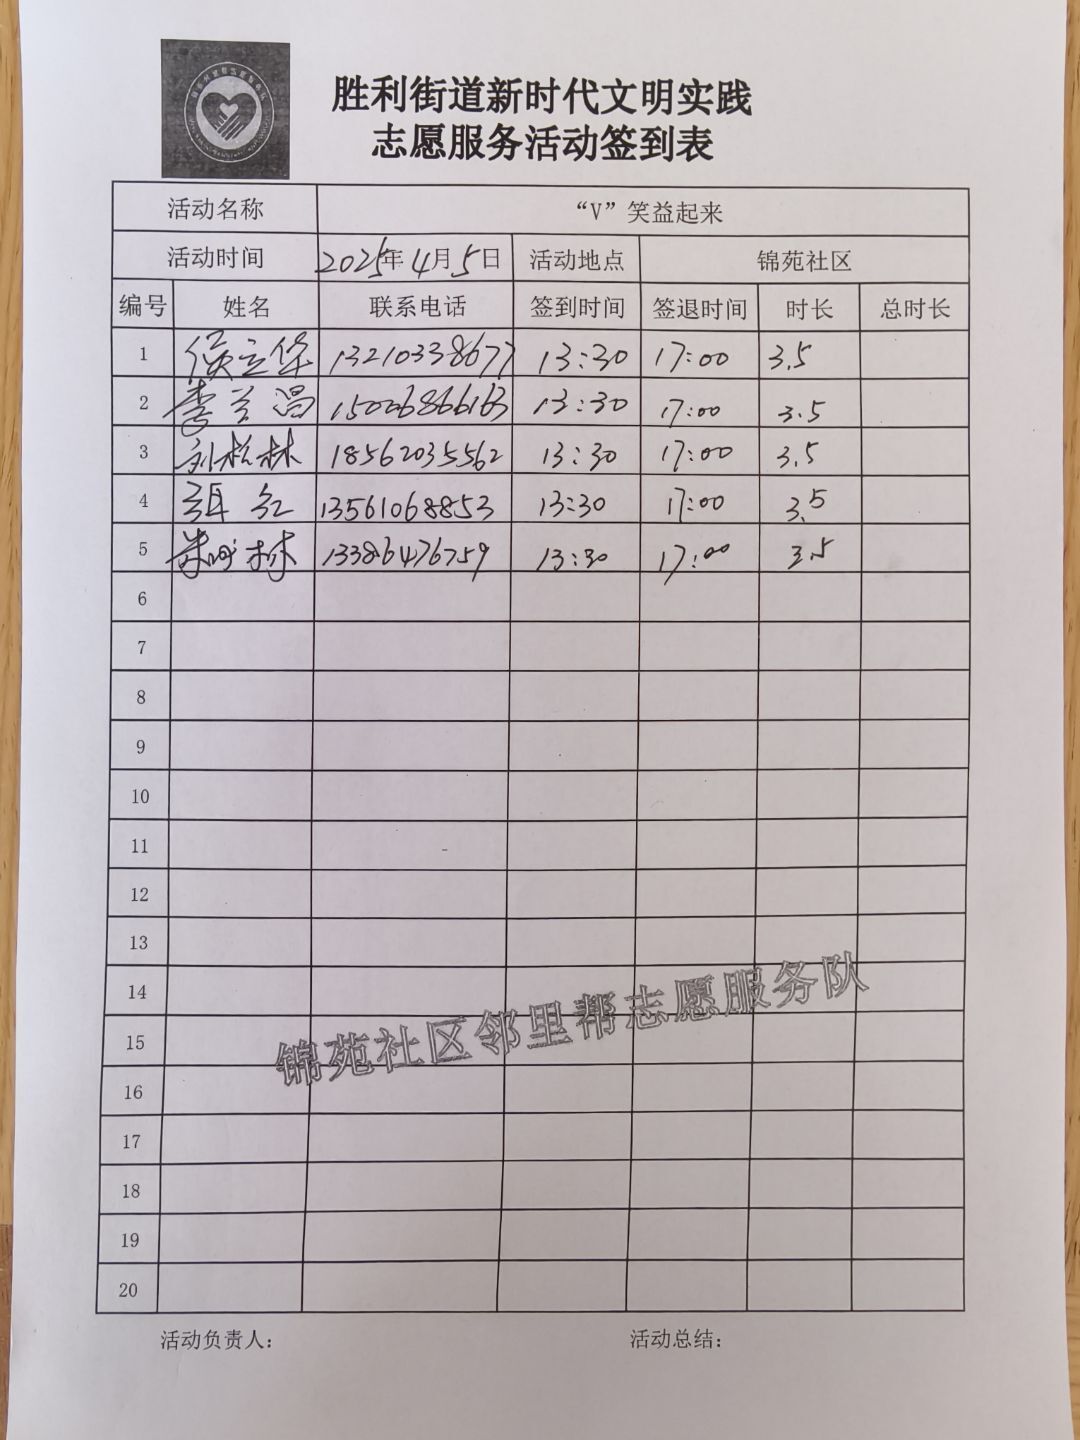 胜利街道新时代文明实践
志愿服务活动签到表
活动名称 “V”笑益起来
活动时间 2025年4月5日 活动地点 锦苑社区
编号 姓名 联系电话 签到时间 签退时间 时长 总时长
1 侯立华 13210338677 13:30 17:00 3.5
2 李兰温 15026866163 13:30 17:00 3.5
3 刘松林 18562035562 13:30 17:00 3.5
4 13561068853 13:30 17:00 3.5
5 13386476759 13:30 17:00 3.5
6
7
8
9
10
11
12
13
14
15
16
17
18
19
20
锦苑社区邻里帮志愿服务队
活动负责人: 活动总结: